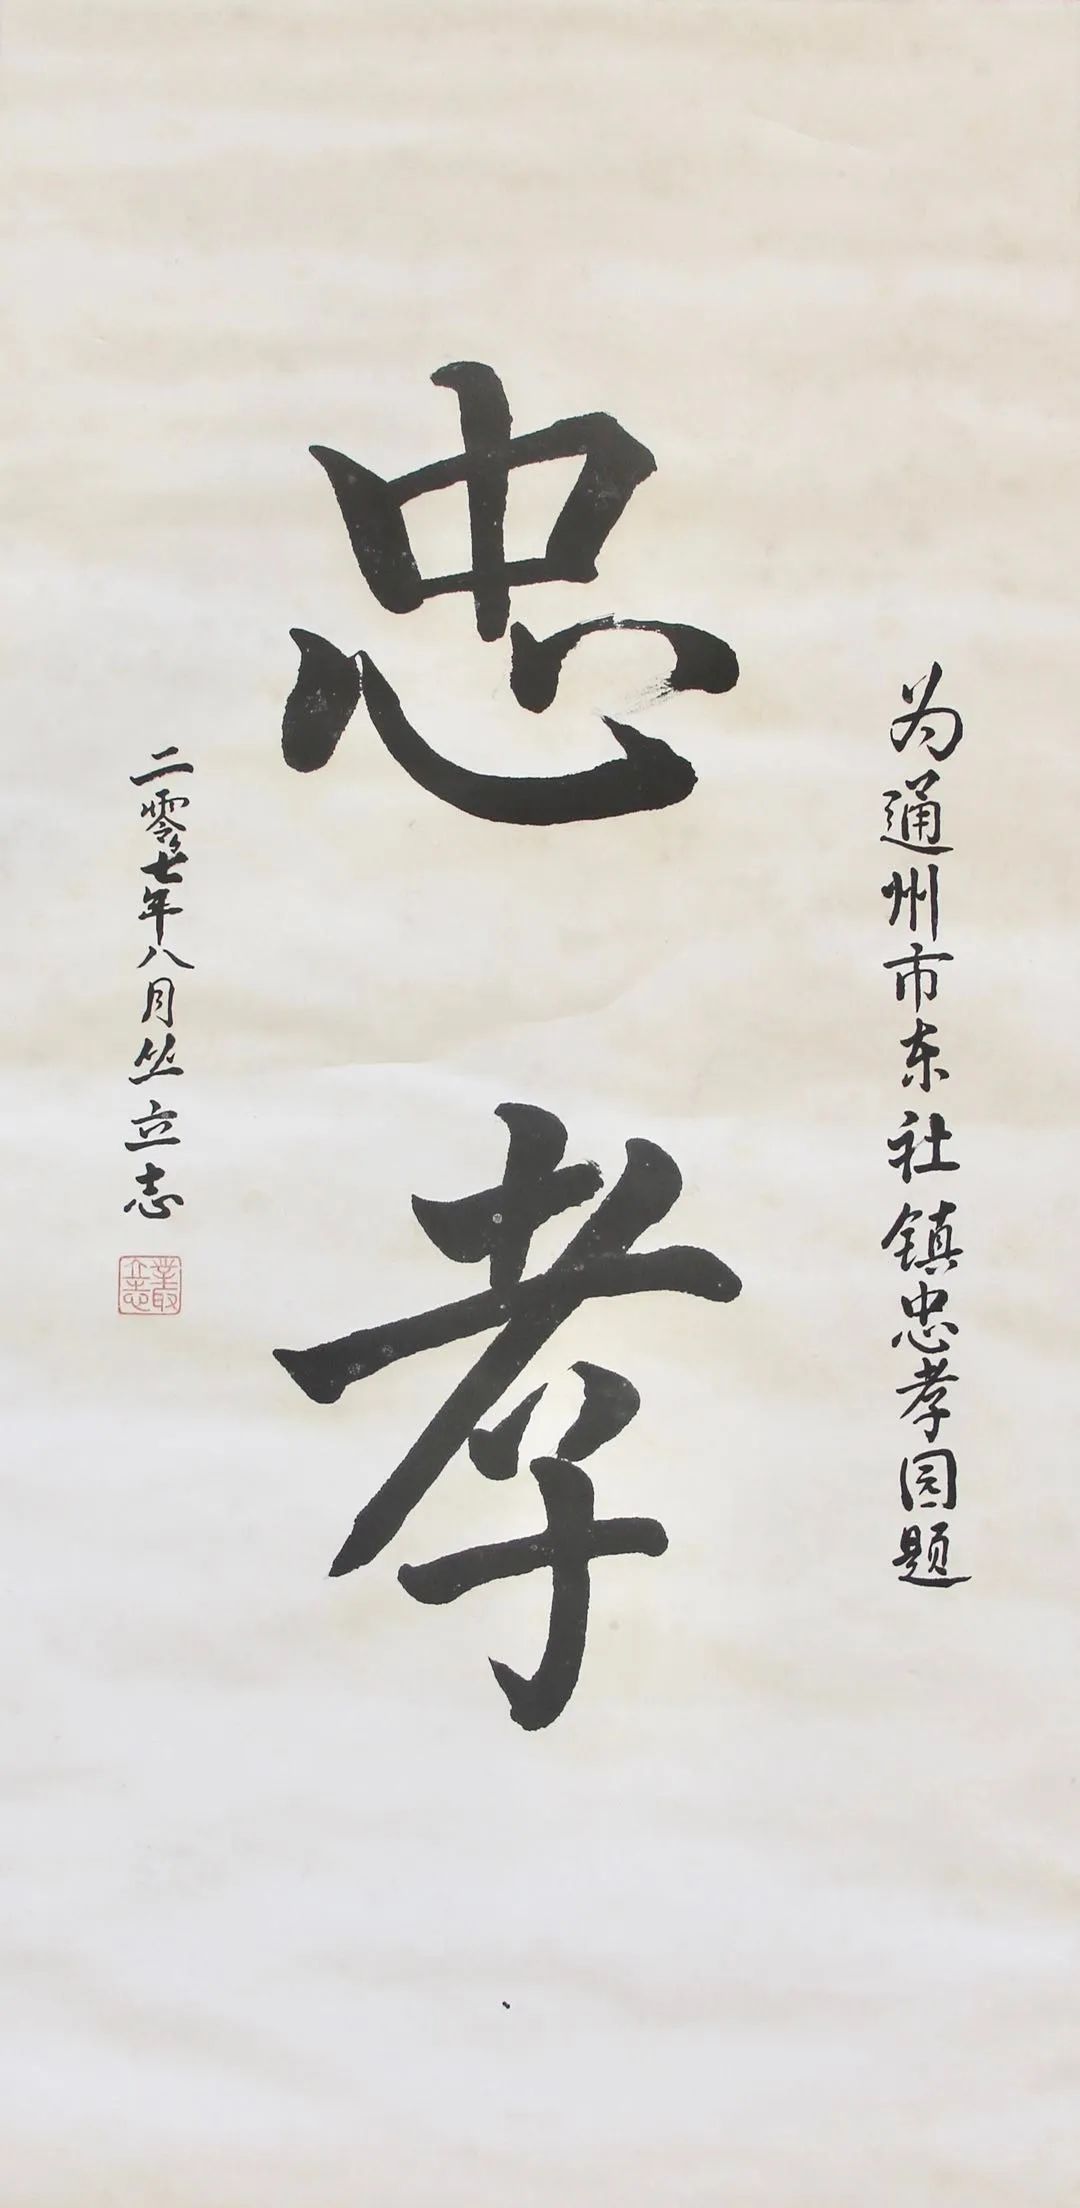 为通州市东社镇忠孝园题
忠孝
二零零七年八月丛立志
叢立志